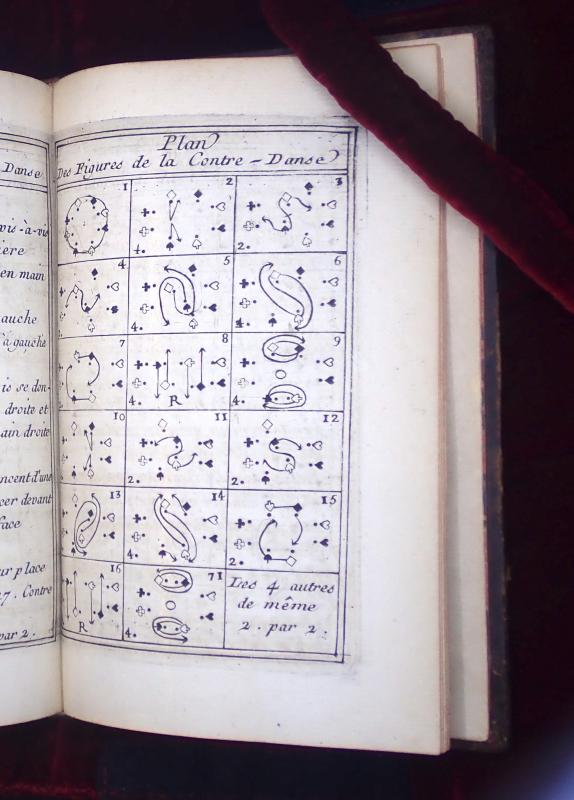 Danse
vis-à-vis
ière
en main
auche
à gauche
is se don-
droite et
ain droite
ncent d'une
cer devant
face
ur place
7. Contre
par 2.
Plan
Des Figures de la Contre-Danse
1 2 3
4. 2.
4 5 6
4. 4.
7 8 9
4. R 4.
10 11 12
2. 2.
13 14 15
4. 2.
16 71
R 4.
Les 4 autres
de même
2. par 2.